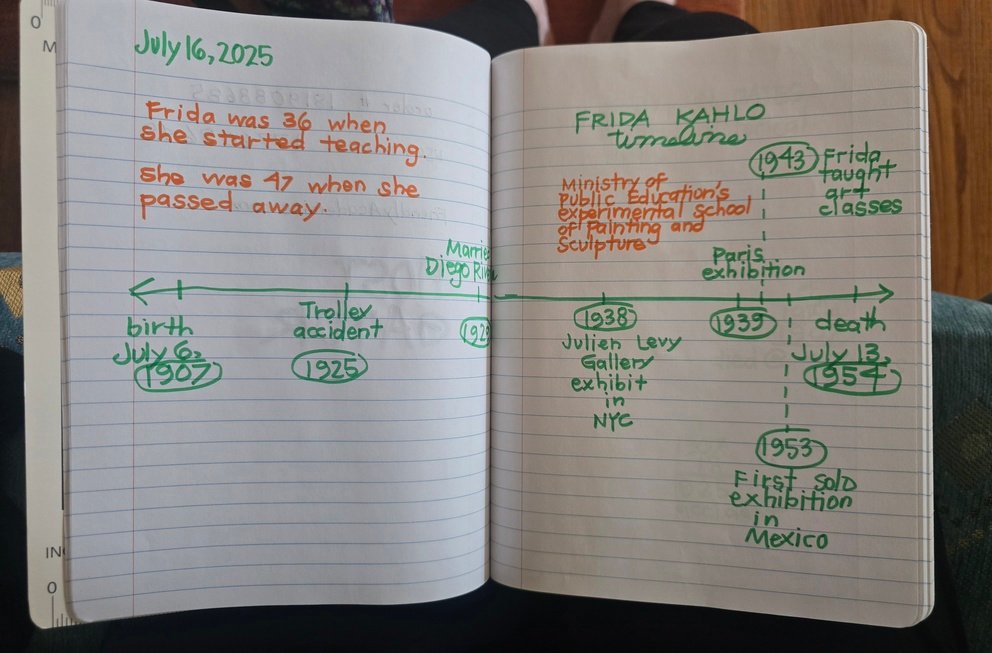 July 16, 2025
Frida was 36 when
she started teaching.
She was 47 when she
passed away.
FRIDA KAHLO
timeline
1943
Frida
taught
art
classes
Ministry of
Public Education's
experimental school
of Painting and
Sculpture
Diego
Paris
exhibition
birth
July 6,
1907
Trolley
accident
1925
1938
Julien Levy
Gallery
exhibit
in
NYC
1939
death
July 13,
1954
1953
First solo
exhibition
in
Mexico